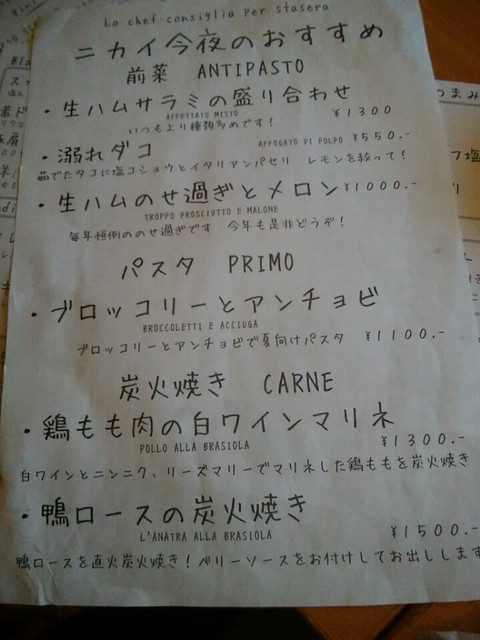 Lo chef consiglia per stasera
ニカイ今夜のおすすめ
前菜 ANTIPASTO
・生ハムサラミの盛り合わせ
AFFETTATO MISTO ¥1300
いつもより種類多めです！
・溺れダコ AFFOGATO DI POLPO ¥550.-
茹でたタコに塩コショウとイタリアンパセリ レモンを絞って！
・生ハムのせ過ぎとメロン ¥1000.-
TROPPO PROSCIUTTO E MALONE
毎年恒例ののせ過ぎです 今年も是非どうぞ！
パスタ PRIMO
・ブロッコリーとアンチョビ
BROCCOLETTI E ACCIUGA
ブロッコリーとアンチョビで夏向けパスタ ¥1100.-
炭火焼き CARNE
・鶏もも肉の白ワインマリネ
POLLO ALLA BRASIOLA ¥1300.-
白ワインとニンニク、リーズマリーでマリネした鶏ももを炭火焼き
・鴨ロースの炭火焼き
L'ANATRA ALLA BRASIOLA ¥1500.-
鴨ロースを直火炭火焼き！ベリーソースをお付けしてお出しします
つまみ